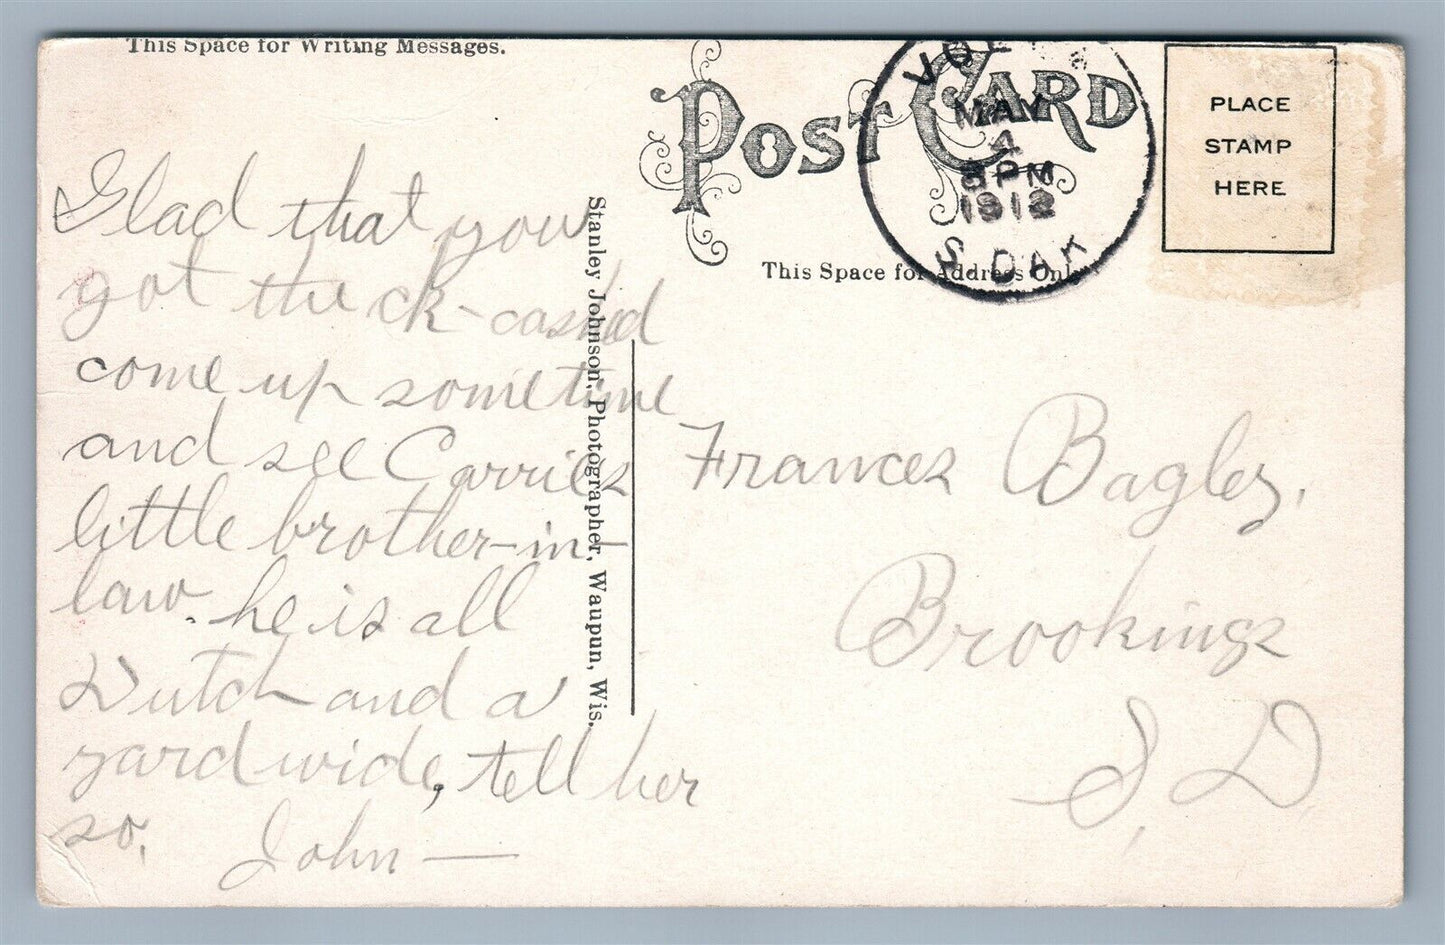 This Space for Writing Messages.
POST CARD
MAY
4
8 PM
1912
S. DAK
PLACE
STAMP
HERE
This Space for Address Only
Stanley Johnson, Photographer, Waupun, Wis.
Glad that you
got the ck - cashed
come up sometime
and see Carries
little brother-in-
law. he is all
Dutch and a
yard wide, tell her
so.
John —
Frances Bagley,
Brookings
S. D.